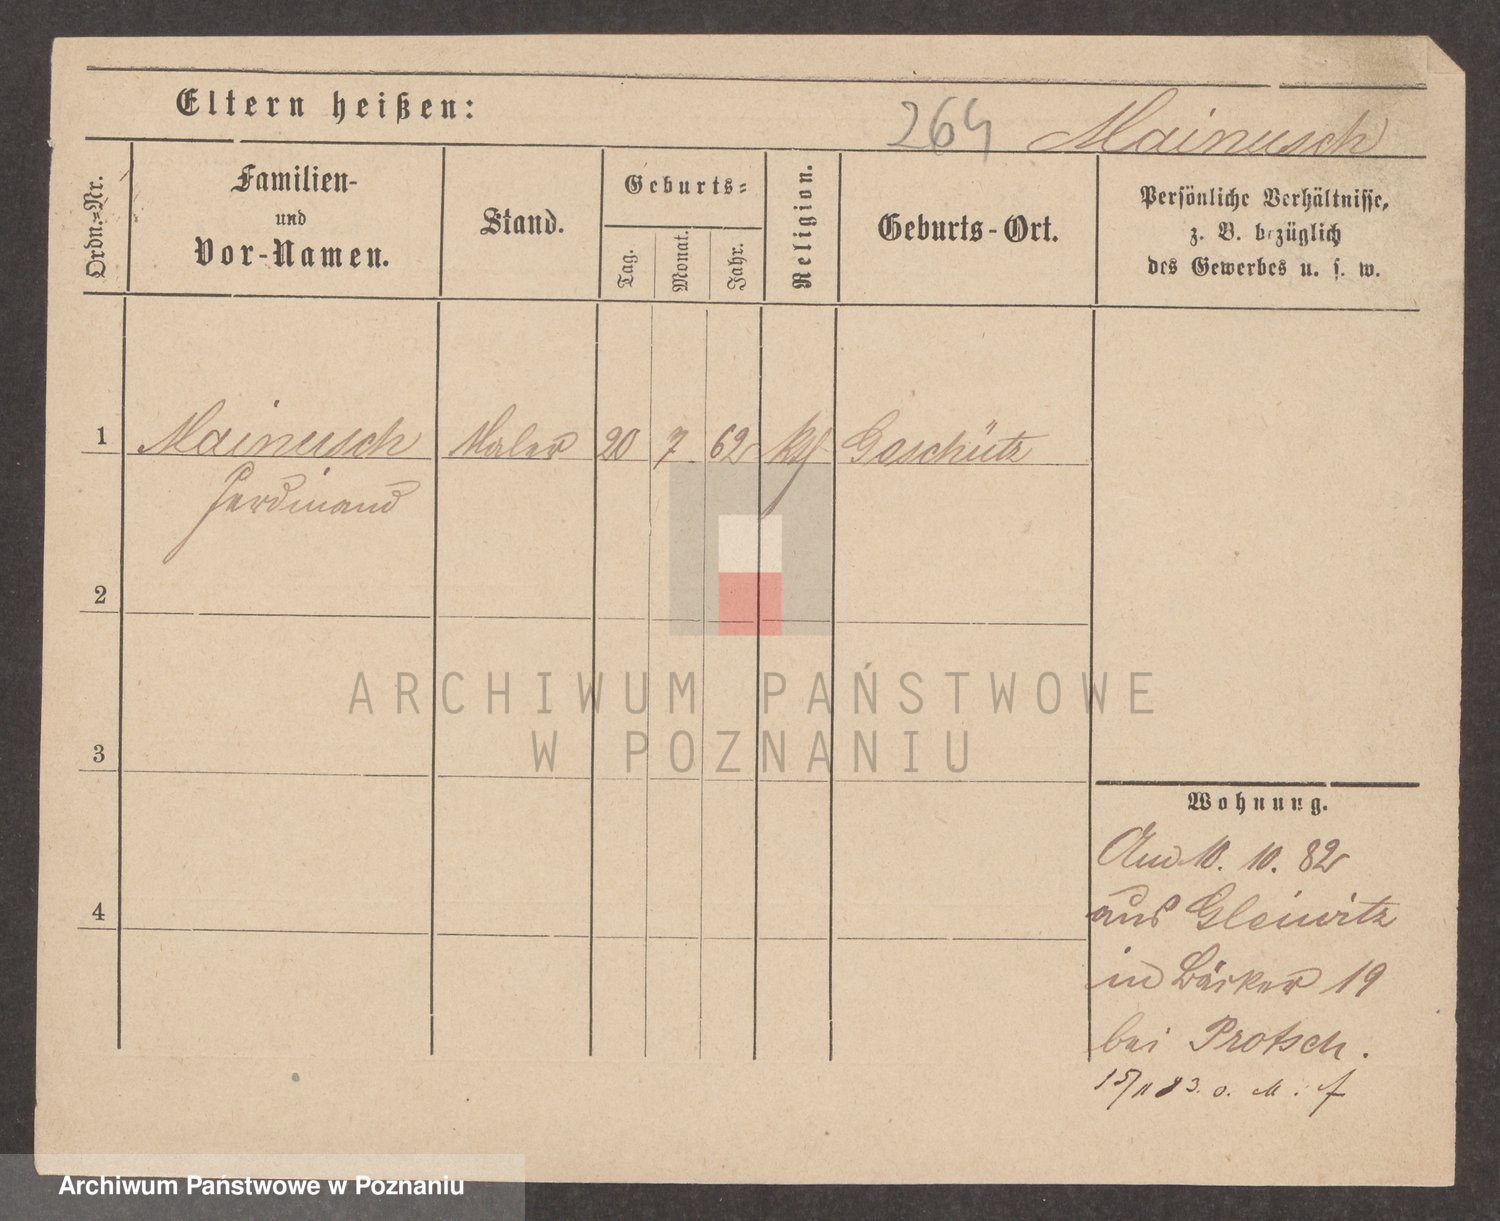 Eltern heißen:
264 Mainusch
Ordn.-Nr.
Familien-
und
Vor-Namen.
Stand.
Geburts-
Tag.
Monat.
Jahr.
Religion.
Geburts-Ort.
Persönliche Verhältnisse,
z. B. bezüglich
des Gewerbes u. s. w.
1 Mainusch Maler 20 7 62 kth Goschütz
Ferdinand
2
3
4
Wohnung.
10. 10. 82
aus Gleiwitz
in Bäcker 19
bei Protsch.
15/11 83. o. M.
ARCHIWUM PAŃSTWOWE
W POZNANIU
Archiwum Państwowe w Poznaniu